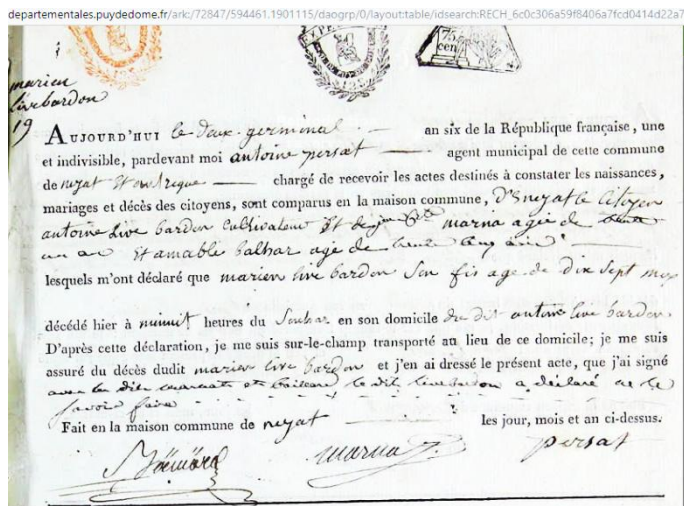 departementales.puydedome.fr/ark:/72847/594461.1901115/daogrp/0/layout:table/idsearch:RECH_6c0c306a59f8406a7fcd0414d22a7
75
cen
marien
livebardon
19
AUJOURD'HUI le deux germinal an six de la République française, une
et indivisible, pardevant moi antoine persat agent municipal de cette commune
de neyat Et chargé de recevoir les actes destinés à constater les naissances,
mariages et décès des citoyens, sont comparus en la maison commune, d'Eneyat le Citoyen
antoine live bardon Cultivateur Et marna agé de
un an Et amable balhar age de
lesquels m'ont déclaré que marien live bardon son fis age de dix sept
décédé hier à minuit heures du en son domicile du dit antoine live bardon.
D'après cette déclaration, je me suis sur-le-champ transporté au lieu de ce domicile; je me suis
assuré du décès dudit marien live bardon et j'en ai dressé le présent acte, que j'ai signé
avec les dits et le dit livebardon a déclaré ne le
savoir faire
Fait en la maison commune de neyat les jour, mois et an ci-dessus.
marna persat